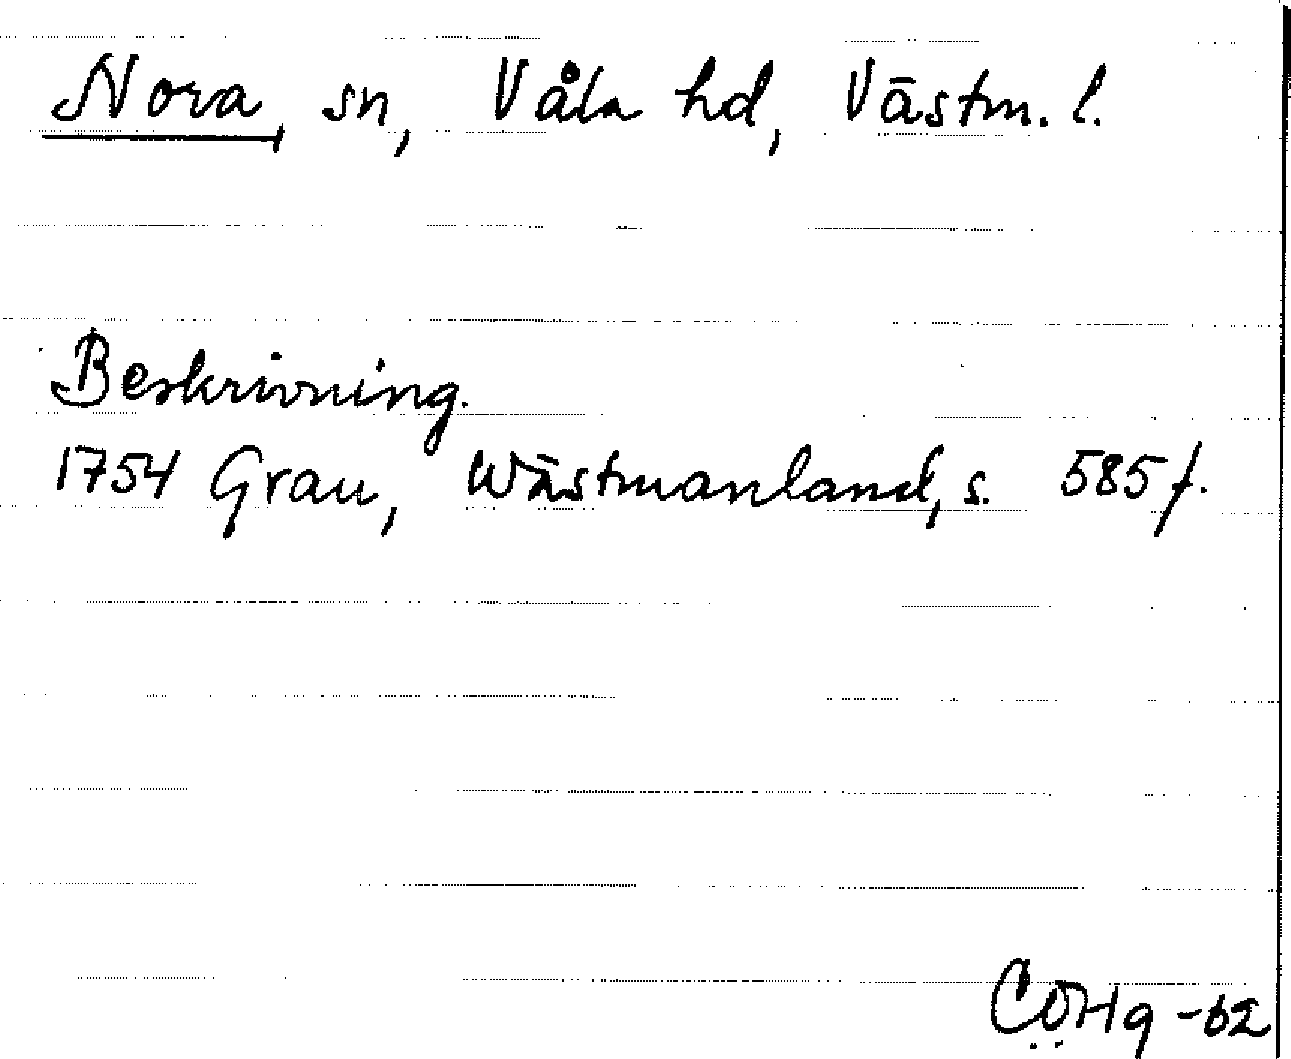 Nora, sn, Våla hd, Västm. l.
Beskrivning.
1754 Grau, Wästmanland, s. 585 f.
CÖHg -62